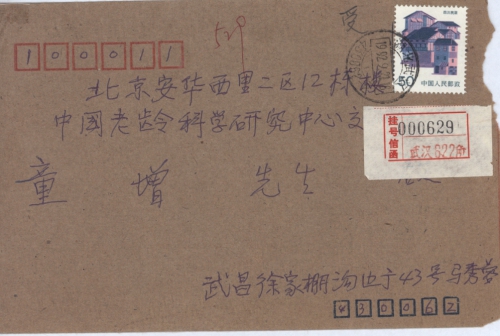 受
529
100011
50
中国人民邮政
北京安华西里二区12栋楼
中国老龄科学研究中心交
挂号信函
000629
武汉622
童增 先生
武昌徐家棚沟边子43号马秀蓉
430062